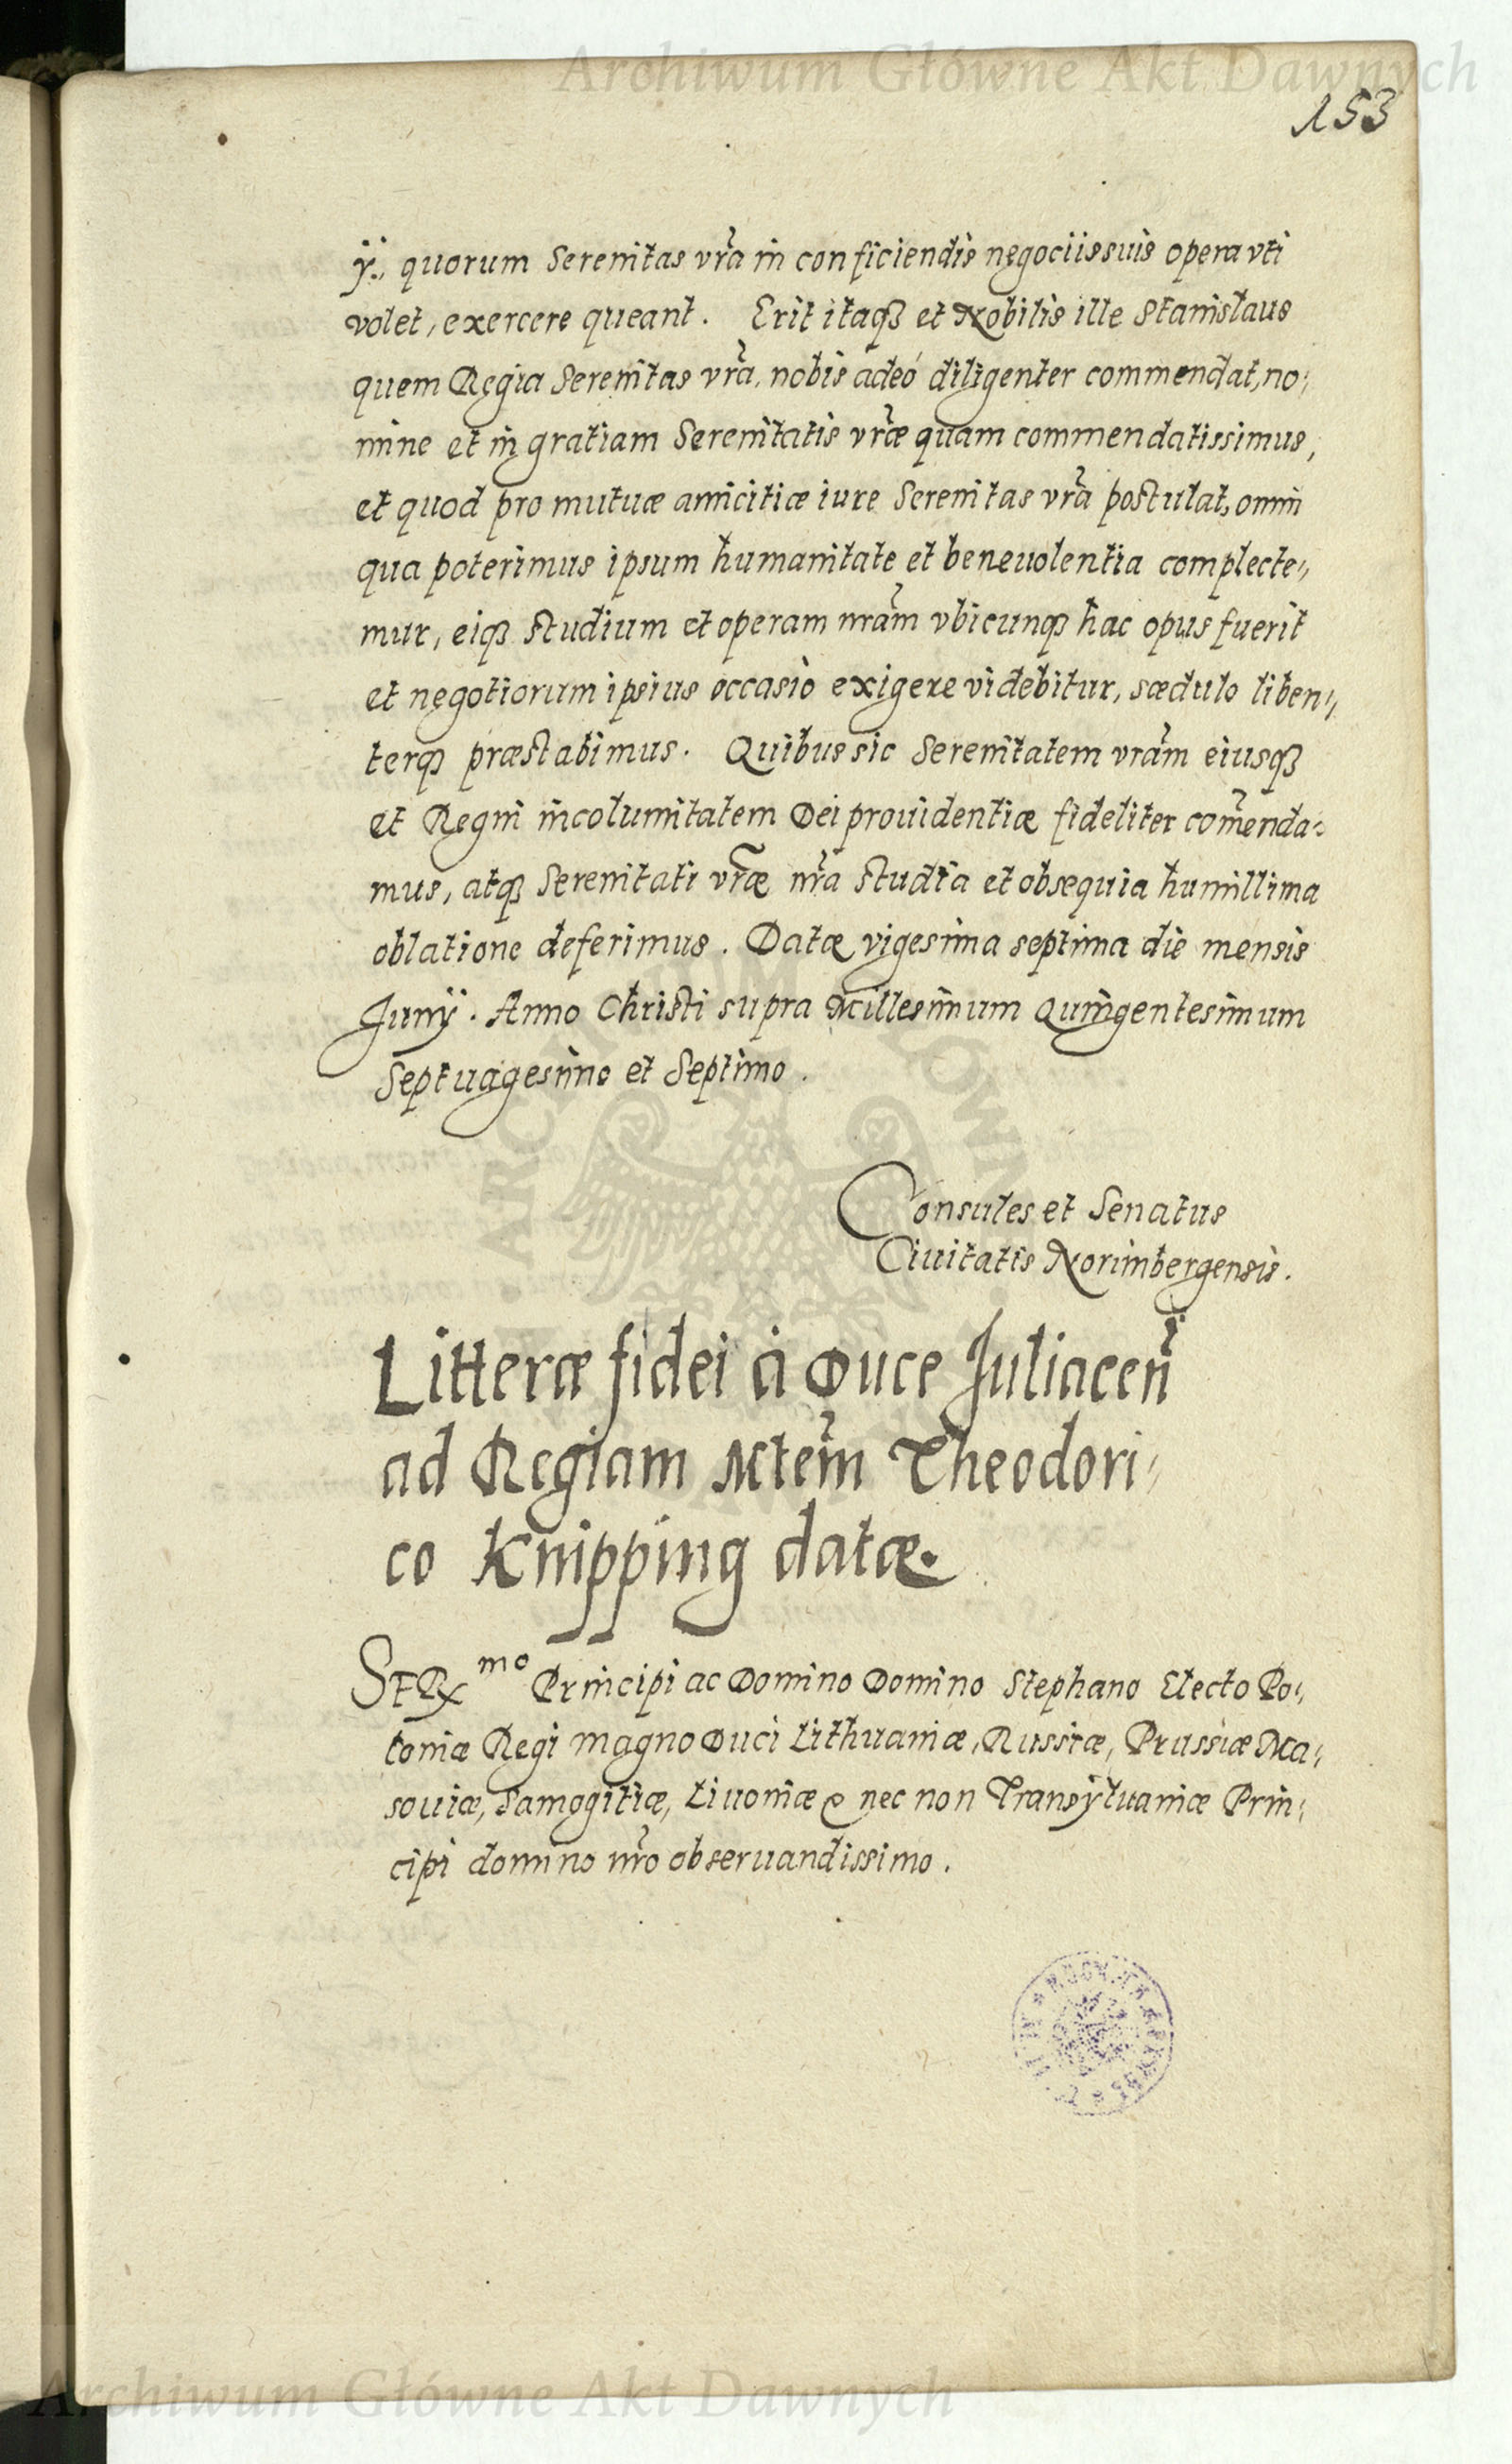 Archiwum Główne Akt Dawnych
153
ÿ., quorum Serenitas vr̃a in conficiendis negociis suis opera vti
volet, exercere queant. Erit itaqꝫ et Nobilis ille Stanislaus
quem Regia Serenitas vr̃a, nobis adeò diligenter commendat, no-
mine et in gratiam Serenitatis vr̃æ quam commendatissimus,
et quod pro mutuæ amicitiæ iure Serenitas vr̃a postulat, omni
qua poterimus ipsum humanitate et beneuolentia complecte-
mur, eiqꝫ studium et operam nr̃am vbicunqꝫ hac opus fuerit
et negotiorum ipsius occasio exigere videbitur, sædulo liben-
terqꝫ præstabimus. Quibus sic Serenitatem vr̃am eiusqꝫ
et Regni incolumitatem Dei prouidentiæ fideliter com̃enda-
mus, atqꝫ Serenitati vr̃æ nr̃a studia et obsequia humillima
oblatione deferimus. Datæ vigesima septima die mensis
Junÿ. Anno Christi supra Millesimum Quingentesimum
Septuagesimo et Septimo.
Consules et Senatus
Ciuitatis Norimbergensis.
Litteræ fidei à Duce Juliaceñ
ad Regiam Mtem̃ Theodori-
co Knipping datæ.
SERmo Principi ac Domino Domino Stephano Electo Po-
loniæ Regi magno Duci Lithuaniæ, Russiæ, Prussiæ Ma-
souiæ, Samogitiæ, Liuoniæ & nec non Transÿluaniæ Prin-
cipi domino nr̃o obseruandissimo.
Archiwum Główne Akt Dawnych